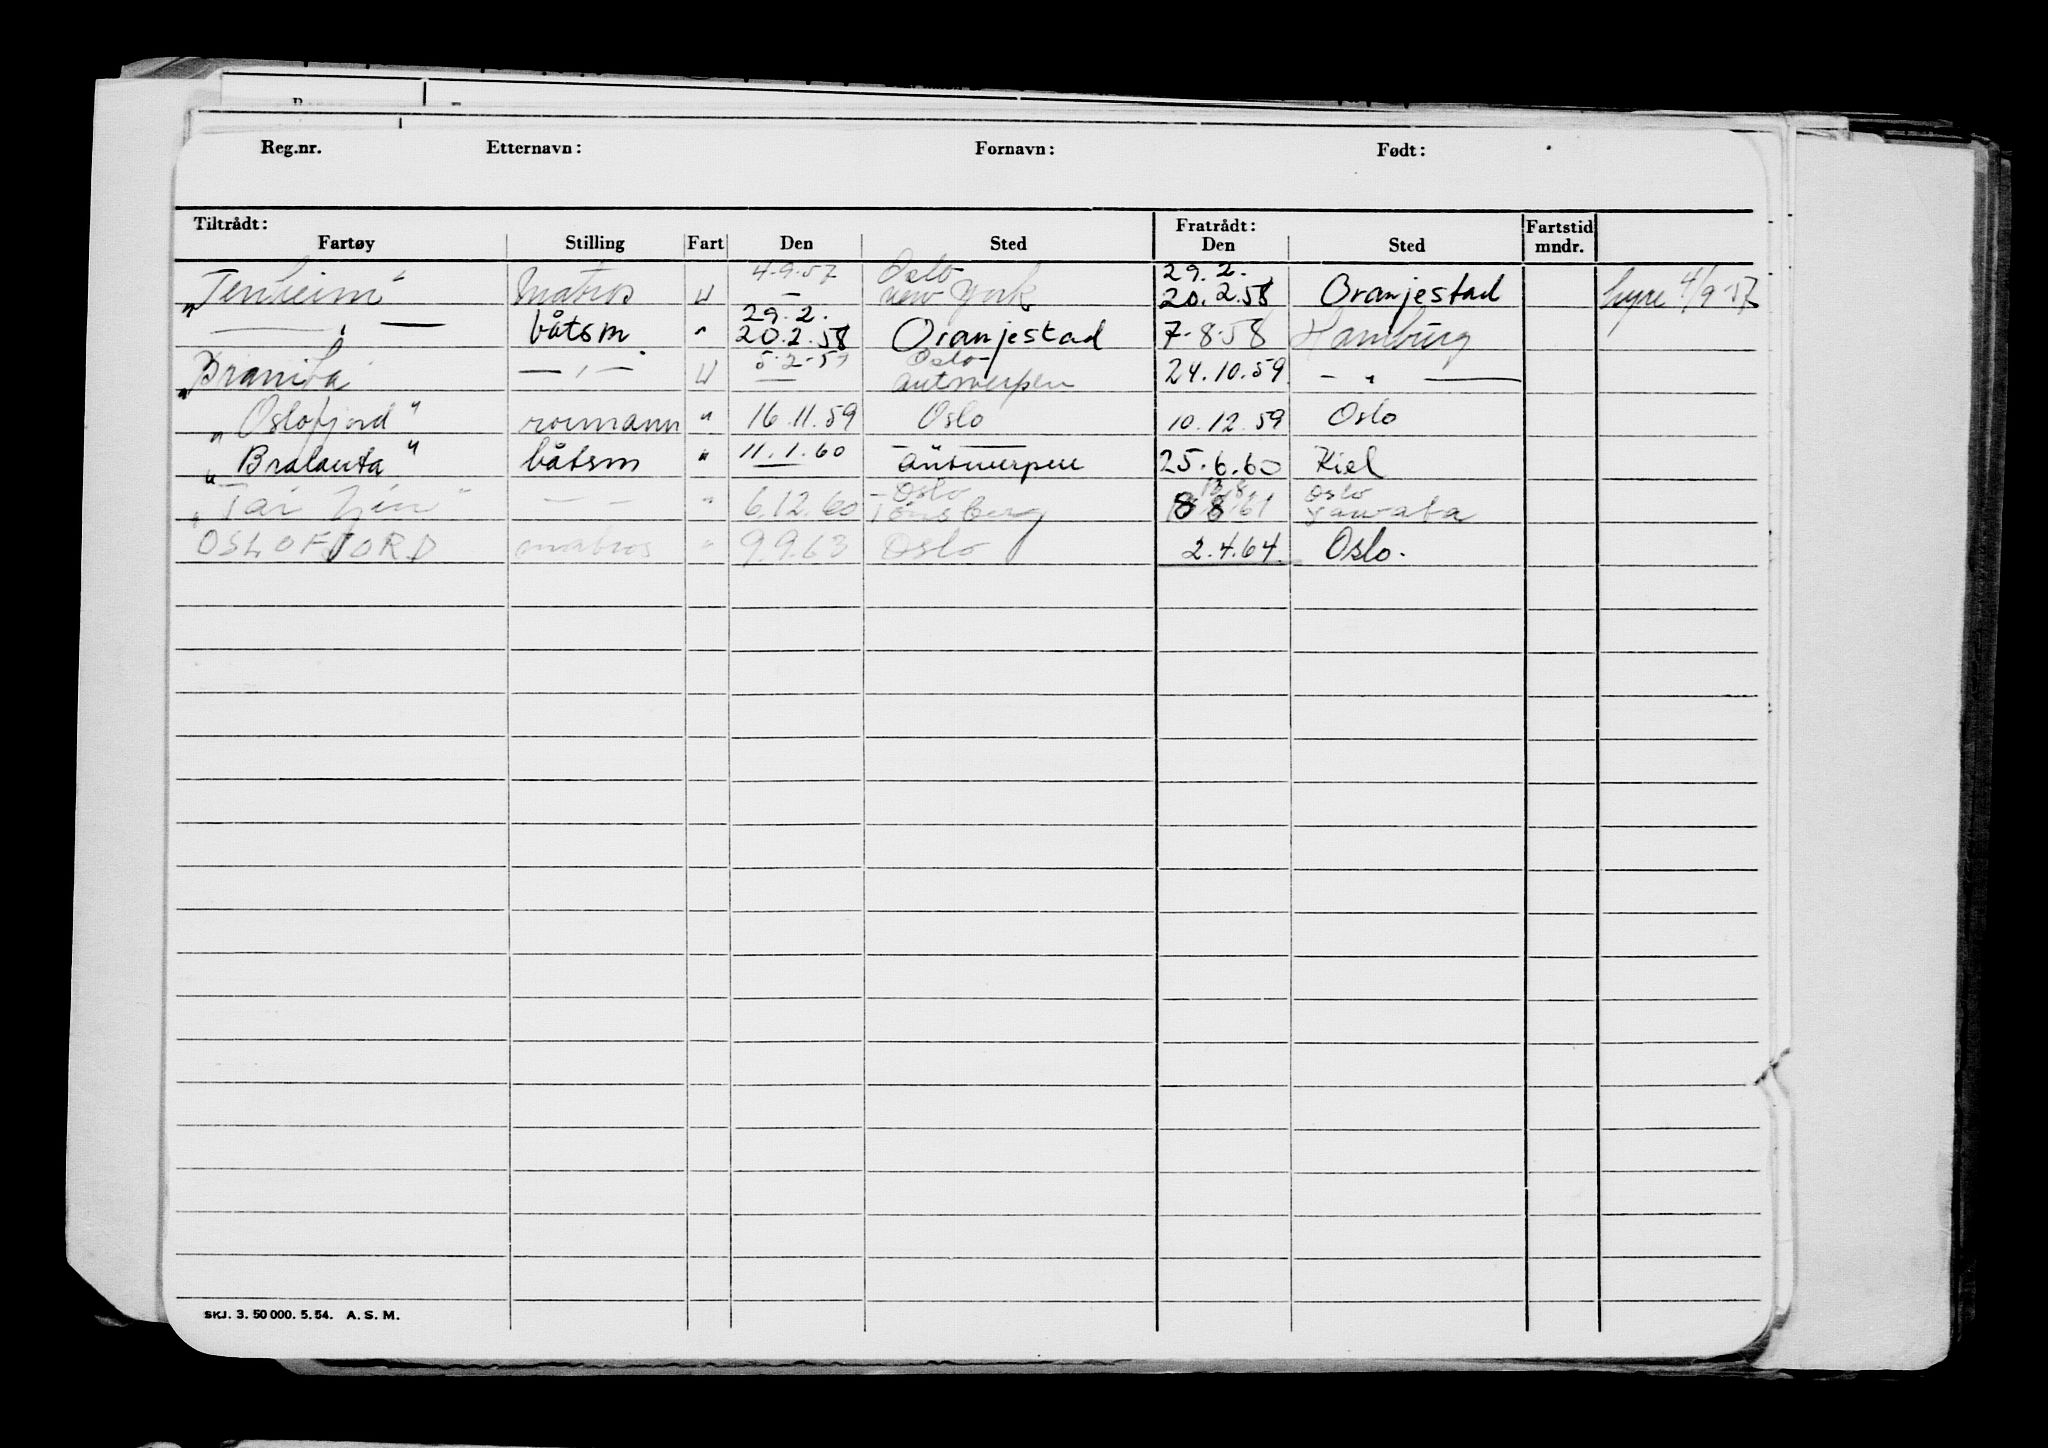 Reg.nr. Etternavn: Fornavn: Født:
Tiltrådt: Fratrådt: Fartstid
Fartøy Stilling Fart Den Sted Den Sted mndr.
4.9.57 Oslo 29.2.
"Tenheim" Matros U — New York 20.2.58 Oranjestad hyre 4/9-57
29.2.
— " — båtsm. " 20.2.58 Oranjestad 7-8-58 Hamburg
5-2-59 Oslo-
"Branita — " — U — Antwerpen 24.10.59 — " —
"Oslofjord" rormann " 16.11.59 Oslo 10.12.59 Oslo
"Bralanta" båtsm " 11.1.60 Antwerpen 25.6.60 Kiel
Oslo 13.8. Oslo
"Tai " — — " 6.12.60 Tønsberg 8 8 61
OSLOFJORD matros " 9.9.63 Oslo 2.4.64 Oslo.
SKJ. 3. 50 000. 5. 54. A. S. M.